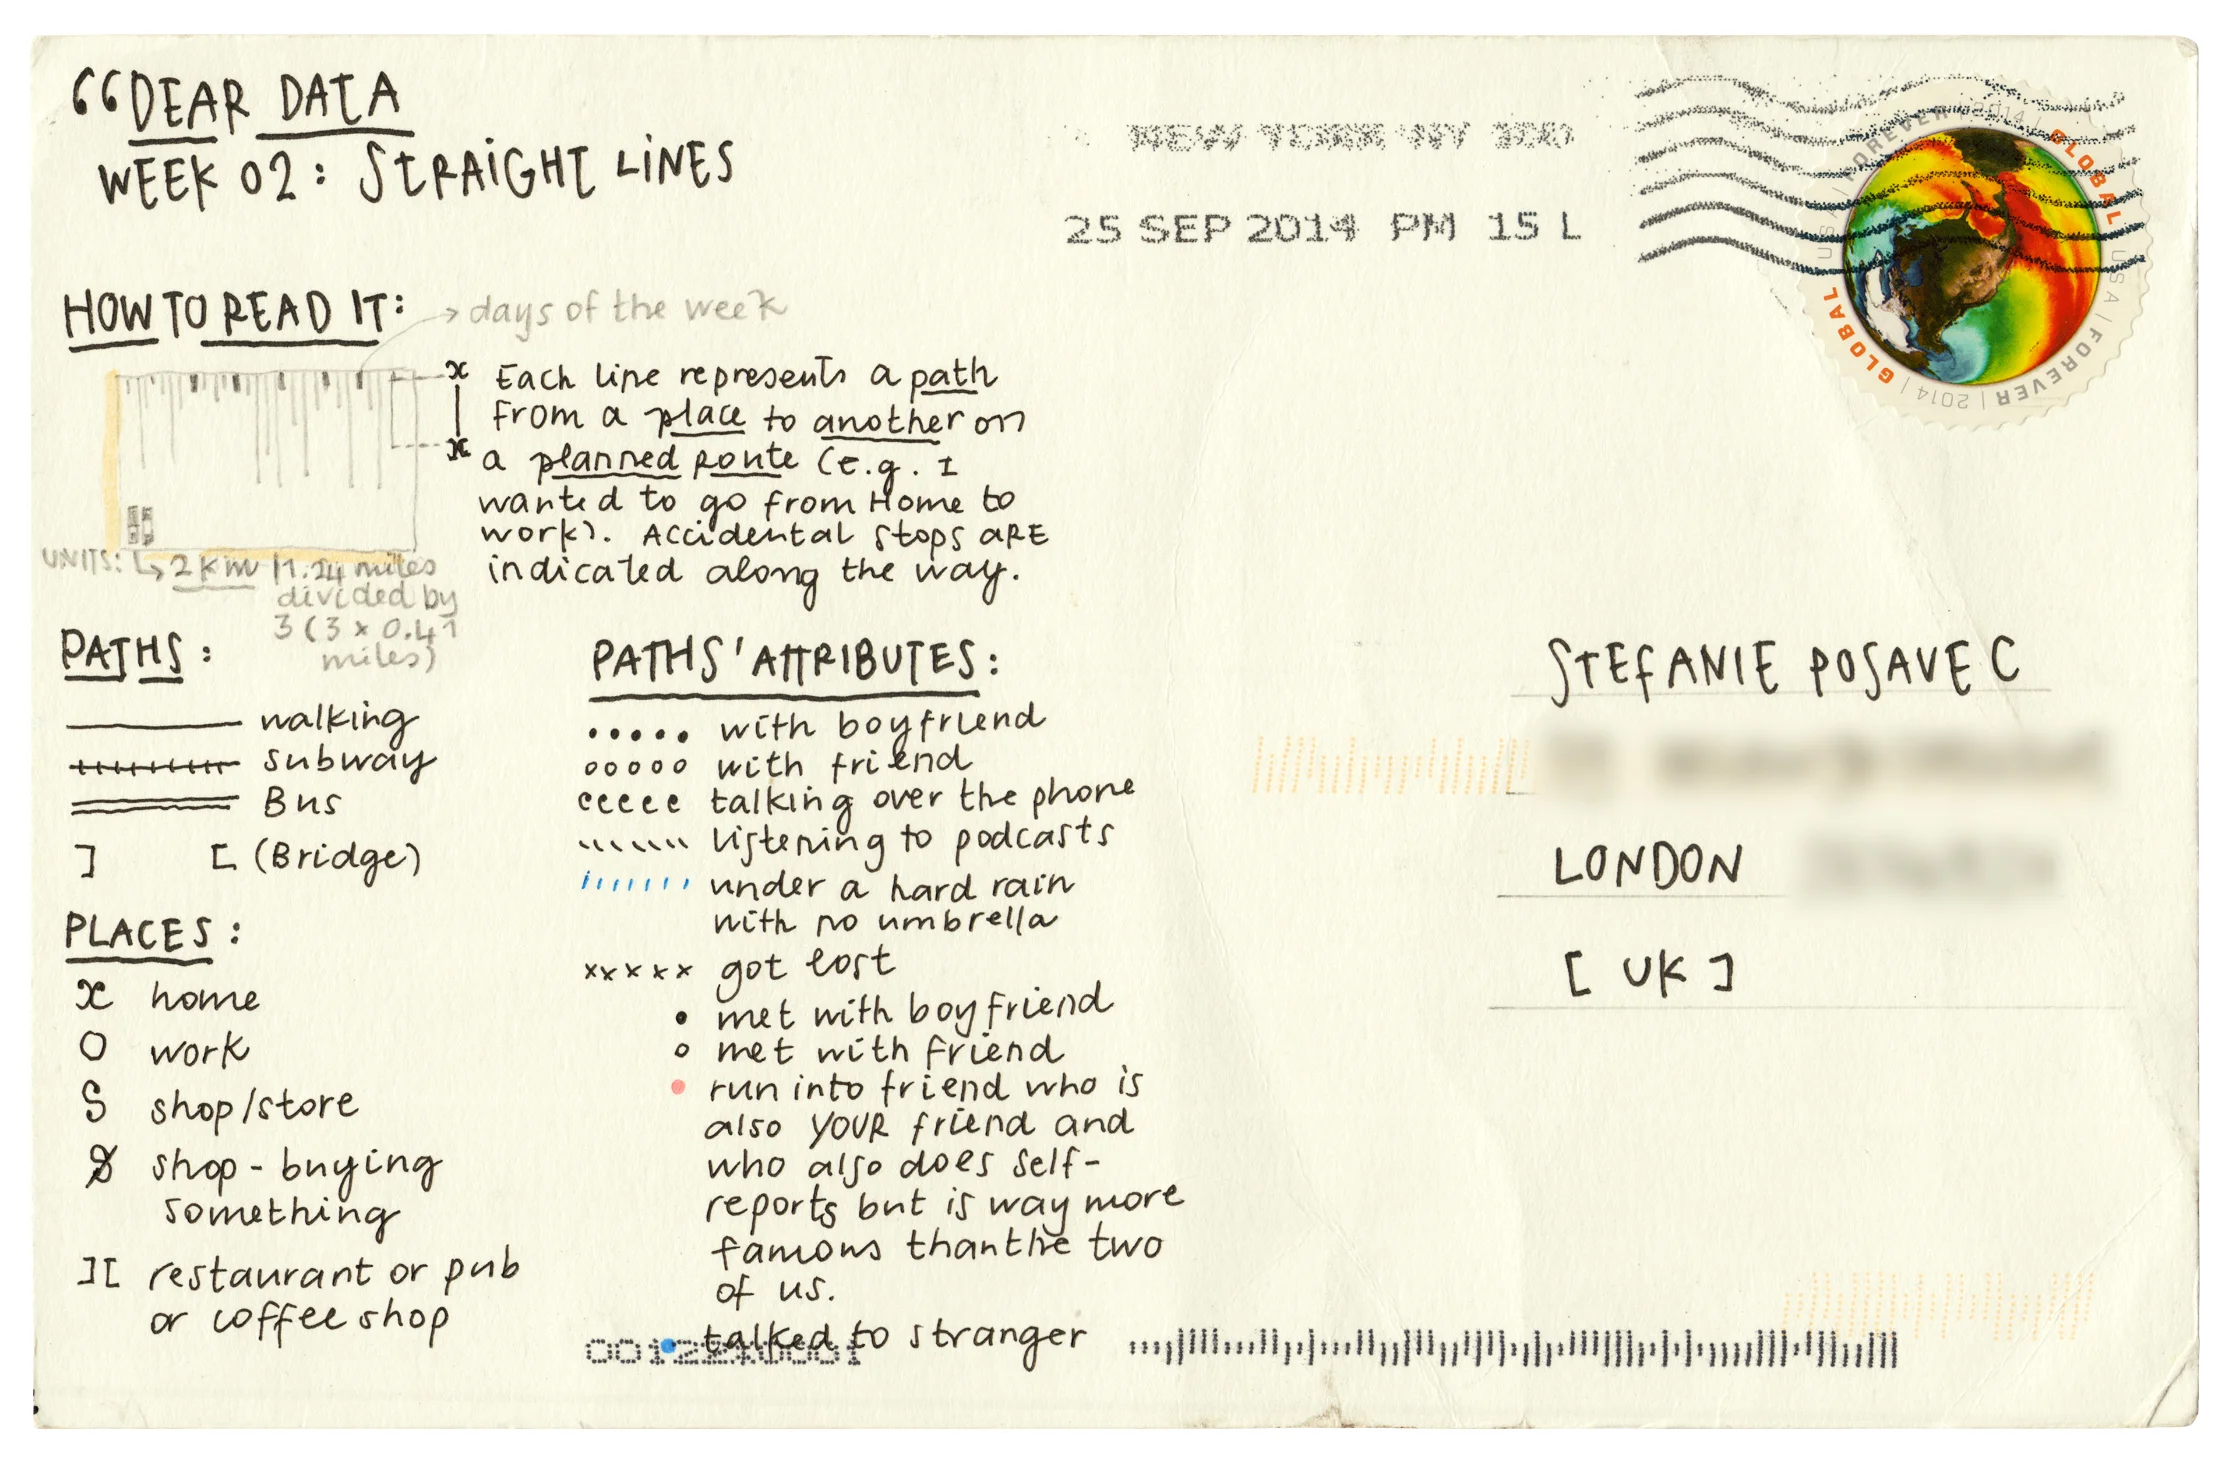 “DEAR DATA
WEEK 02: STRAIGHT LINES
NEW YORK NY 100
25 SEP 2014 PM 15 L
FOREVER | 2014 | GLOBAL USA | FOREVER | 2014 | GLOBAL USA
HOW TO READ IT:
days of the week
x Each line represents a path
from a place to another on
x a planned route (e.g. I
wanted to go from Home to
work). Accidental stops ARE
indicated along the way.
UNITS: 2 km | 1.24 miles
divided by
3 (3 x 0.41
miles)
PATHS:
walking
subway
Bus
] [ (Bridge)
PLACES:
x home
O work
S shop/store
shop - buying
something
][ restaurant or pub
or coffee shop
PATHS' ATTRIBUTES:
with boyfriend
with friend
ccccc talking over the phone
listening to podcasts
under a hard rain
with no umbrella
xxxxx got lost
met with boyfriend
met with friend
run into friend who is
also YOUR friend and
who also does self-
reports but is way more
famous than the two
of us.
talked to stranger
STEFANIE POSAVEC
LONDON
[ UK ]